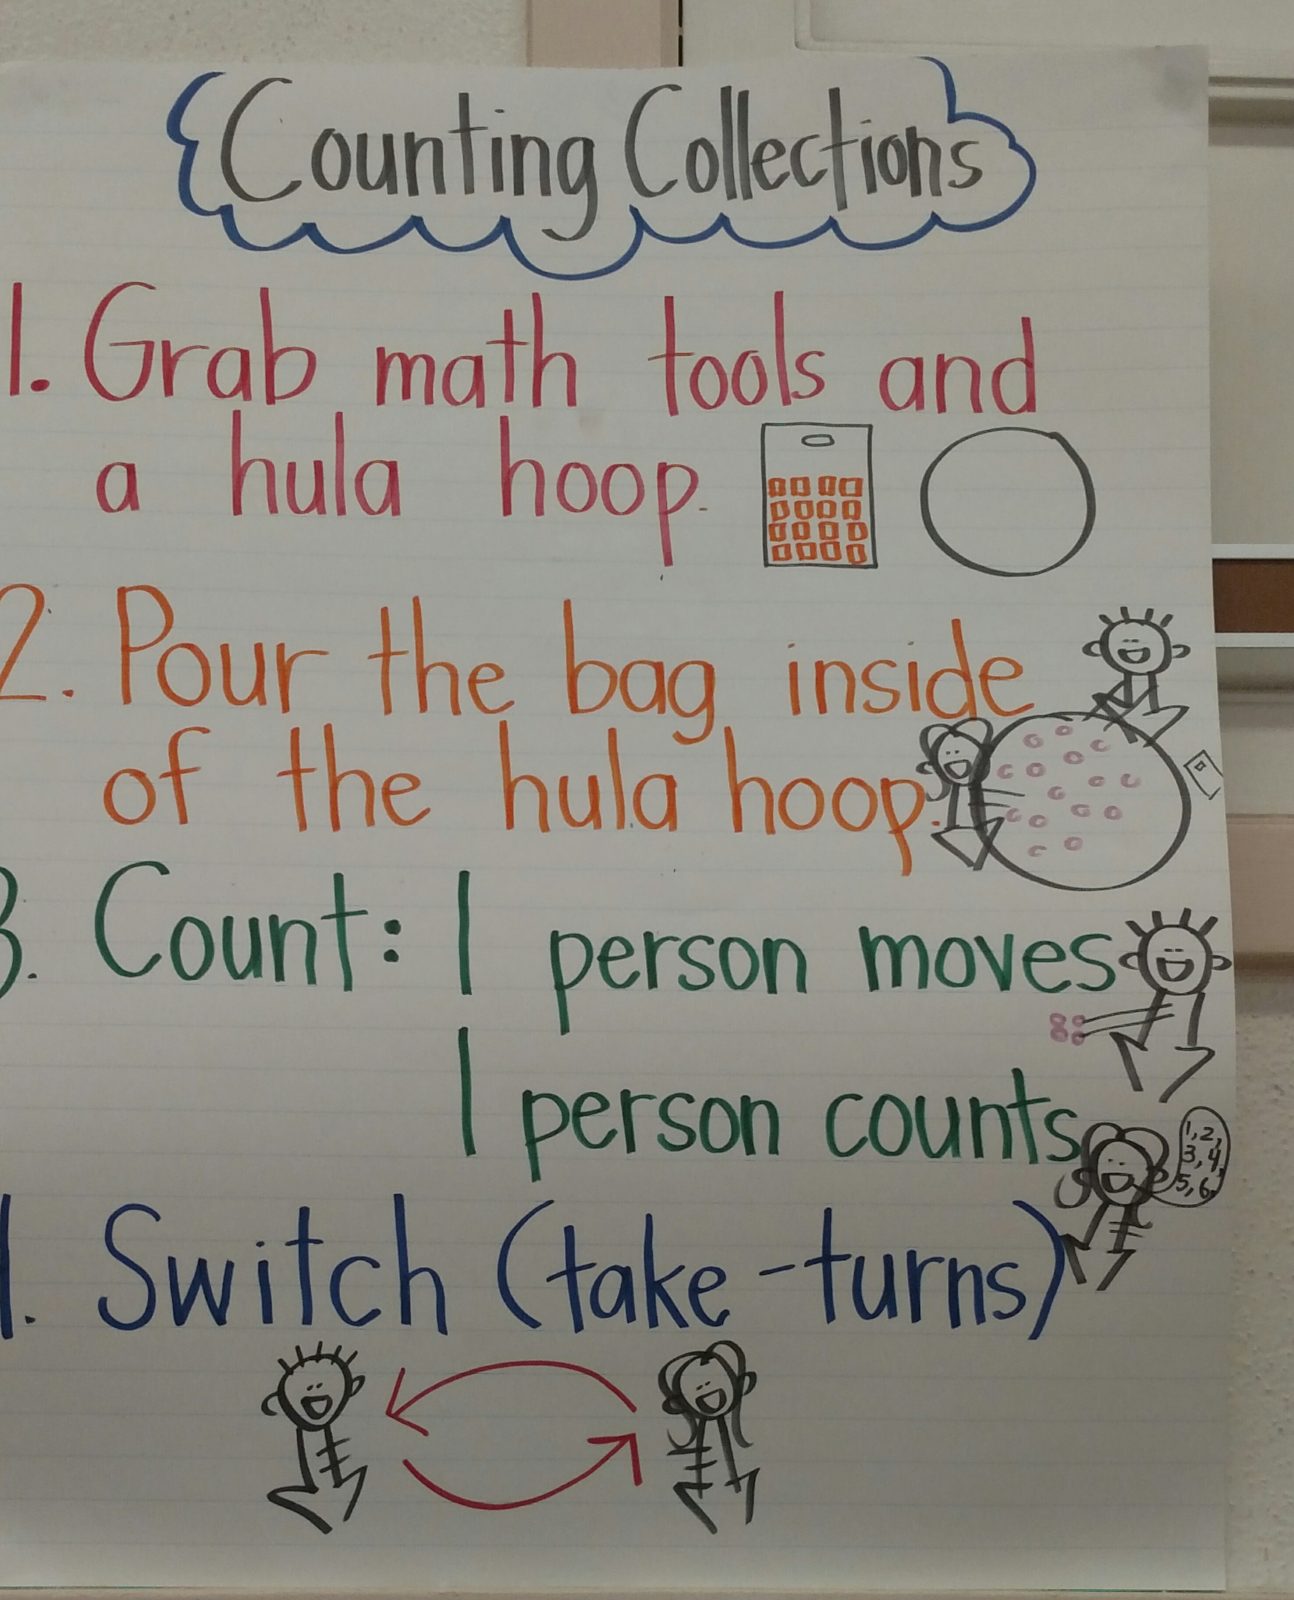 Counting Collections
1. Grab math tools and
a hula hoop.
2. Pour the bag inside
of the hula hoop.
3. Count: 1 person moves
1 person counts
1, 2,
3, 4,
5, 6,
4. Switch (take-turns)